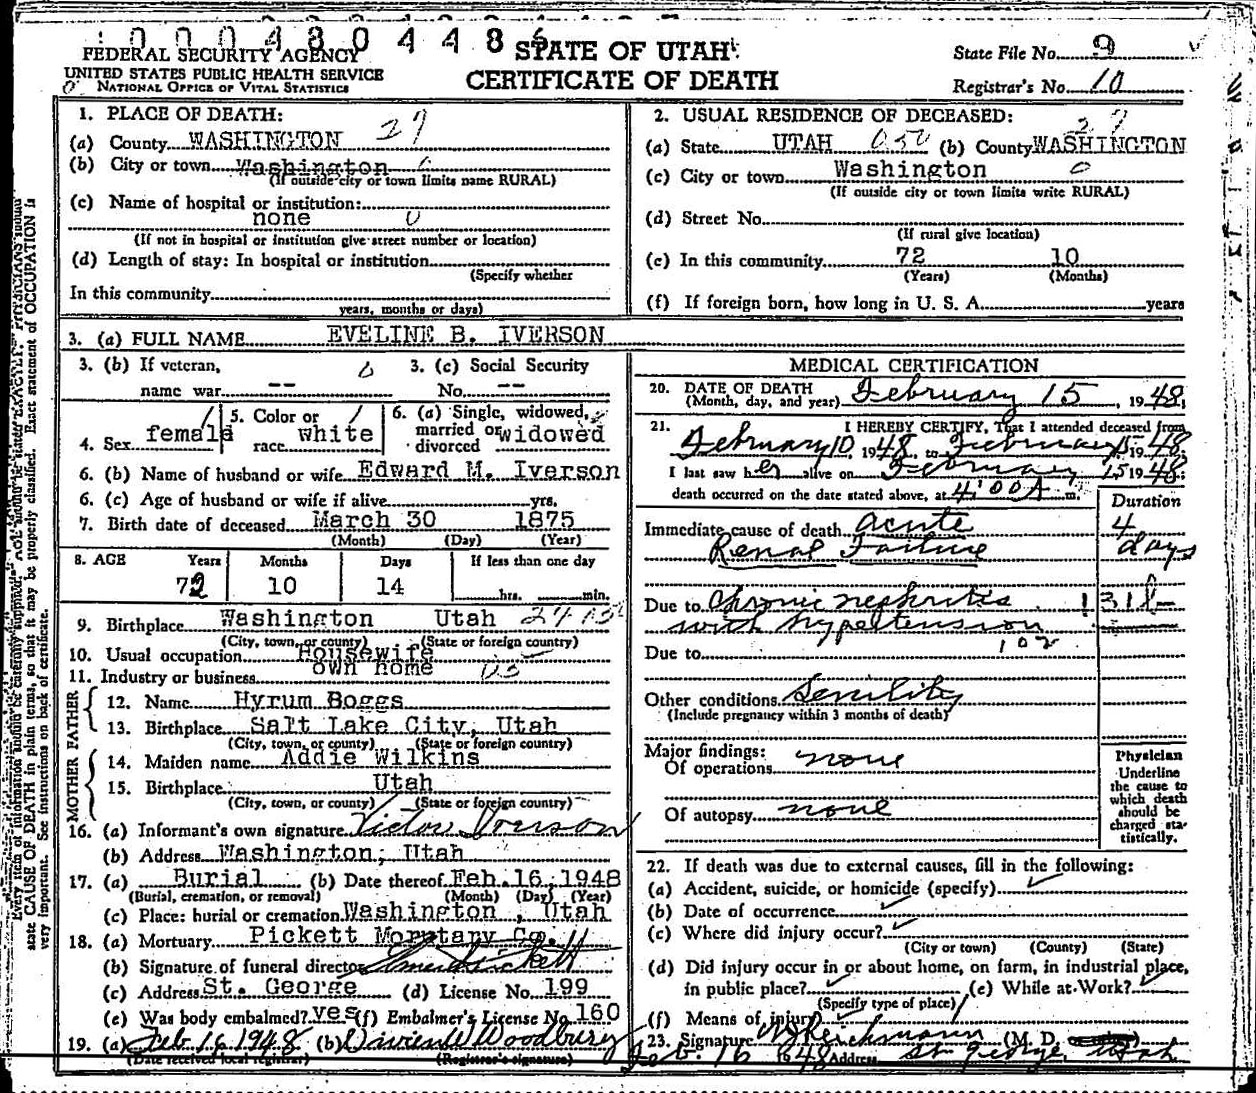 0 0 0 4 8 0 4 4 8 6
FEDERAL SECURITY AGENCY
UNITED STATES PUBLIC HEALTH SERVICE
NATIONAL OFFICE OF VITAL STATISTICS
STATE OF UTAH
CERTIFICATE OF DEATH
State File No. 9
Registrar's No. 10
1. PLACE OF DEATH:
(a) County WASHINGTON 27
(b) City or town Washington
(If outside city or town limits name RURAL)
(c) Name of hospital or institution:
none 0
(If not in hospital or institution give street number or location)
(d) Length of stay: In hospital or institution
(Specify whether
In this community
years, months or days)
2. USUAL RESIDENCE OF DECEASED:
27
(a) State UTAH 050 (b) County WASHINGTON
(c) City or town Washington 0
(If outside city or town limits write RURAL)
(d) Street No.
(If rural give location)
(e) In this community 72 10
(Years) (Months)
(f) If foreign born, how long in U. S. A. years
3. (a) FULL NAME EVELINE B. IVERSON
3. (b) If veteran, 0 3. (c) Social Security
name war -- No. --
4. Sex female 5. Color or race white 6. (a) Single, widowed, married or divorced widowed
6. (b) Name of husband or wife Edward M. Iverson
6. (c) Age of husband or wife if alive yrs.
7. Birth date of deceased March 30 1875
(Month) (Day) (Year)
8. AGE Years Months Days If less than one day
72 10 14 hrs. min.
9. Birthplace Washington Utah
(City, town, or county) (State or foreign country)
10. Usual occupation Housewife
11. Industry or business own home
FATHER
12. Name Hyrum Boggs
13. Birthplace Salt Lake City, Utah
(City, town, or county) (State or foreign country)
MOTHER
14. Maiden name Addie Wilkins
15. Birthplace Utah
(City, town, or county) (State or foreign country)
16. (a) Informant's own signature Victor Iverson
(b) Address Washington, Utah
17. (a) Burial (b) Date thereof Feb. 16, 1948
(Burial, cremation, or removal) (Month) (Day) (Year)
(c) Place: burial or cremation Washington, Utah
18. (a) Mortuary Pickett Morutary Co.
(b) Signature of funeral director Pickett
(c) Address St. George (d) License No. 199
(e) Was body embalmed? yes (f) Embalmer's License No. 160
19. (a) Feb. 16 1948 (b) Woodbury
(Date received local registrar) (Registrar's signature)
MEDICAL CERTIFICATION
20. DATE OF DEATH
(Month, day, and year) February 15, 1948
21. I HEREBY CERTIFY, That I attended deceased from
February 10, 1948, to February 15 1948
I last saw her alive on February 15 1948;
death occurred on the date stated above, at 4:00 A m.
Duration
Immediate cause of death acute 4
Renal Failure days
Due to Chronic nephritis
with hypertension
Due to
Other conditions Senility
(Include pregnancy within 3 months of death)
Major findings:
Of operations none
Of autopsy none
Physician
Underline
the cause to
which death
should be
charged sta-
tistically.
22. If death was due to external causes, fill in the following:
(a) Accident, suicide, or homicide (specify)
(b) Date of occurrence
(c) Where did injury occur?
(City or town) (County) (State)
(d) Did injury occur in or about home, on farm, in industrial place,
in public place? (e) While at Work?
(Specify type of place)
(f) Means of injury
23. Signature Reichmann (M. D.
Feb. 16 1948 Address St. George, Utah
state CAUSE OF DEATH in plain terms, so that it may be properly classified. Exact statement of OCCUPATION is
very important. See instructions on back of certificate.